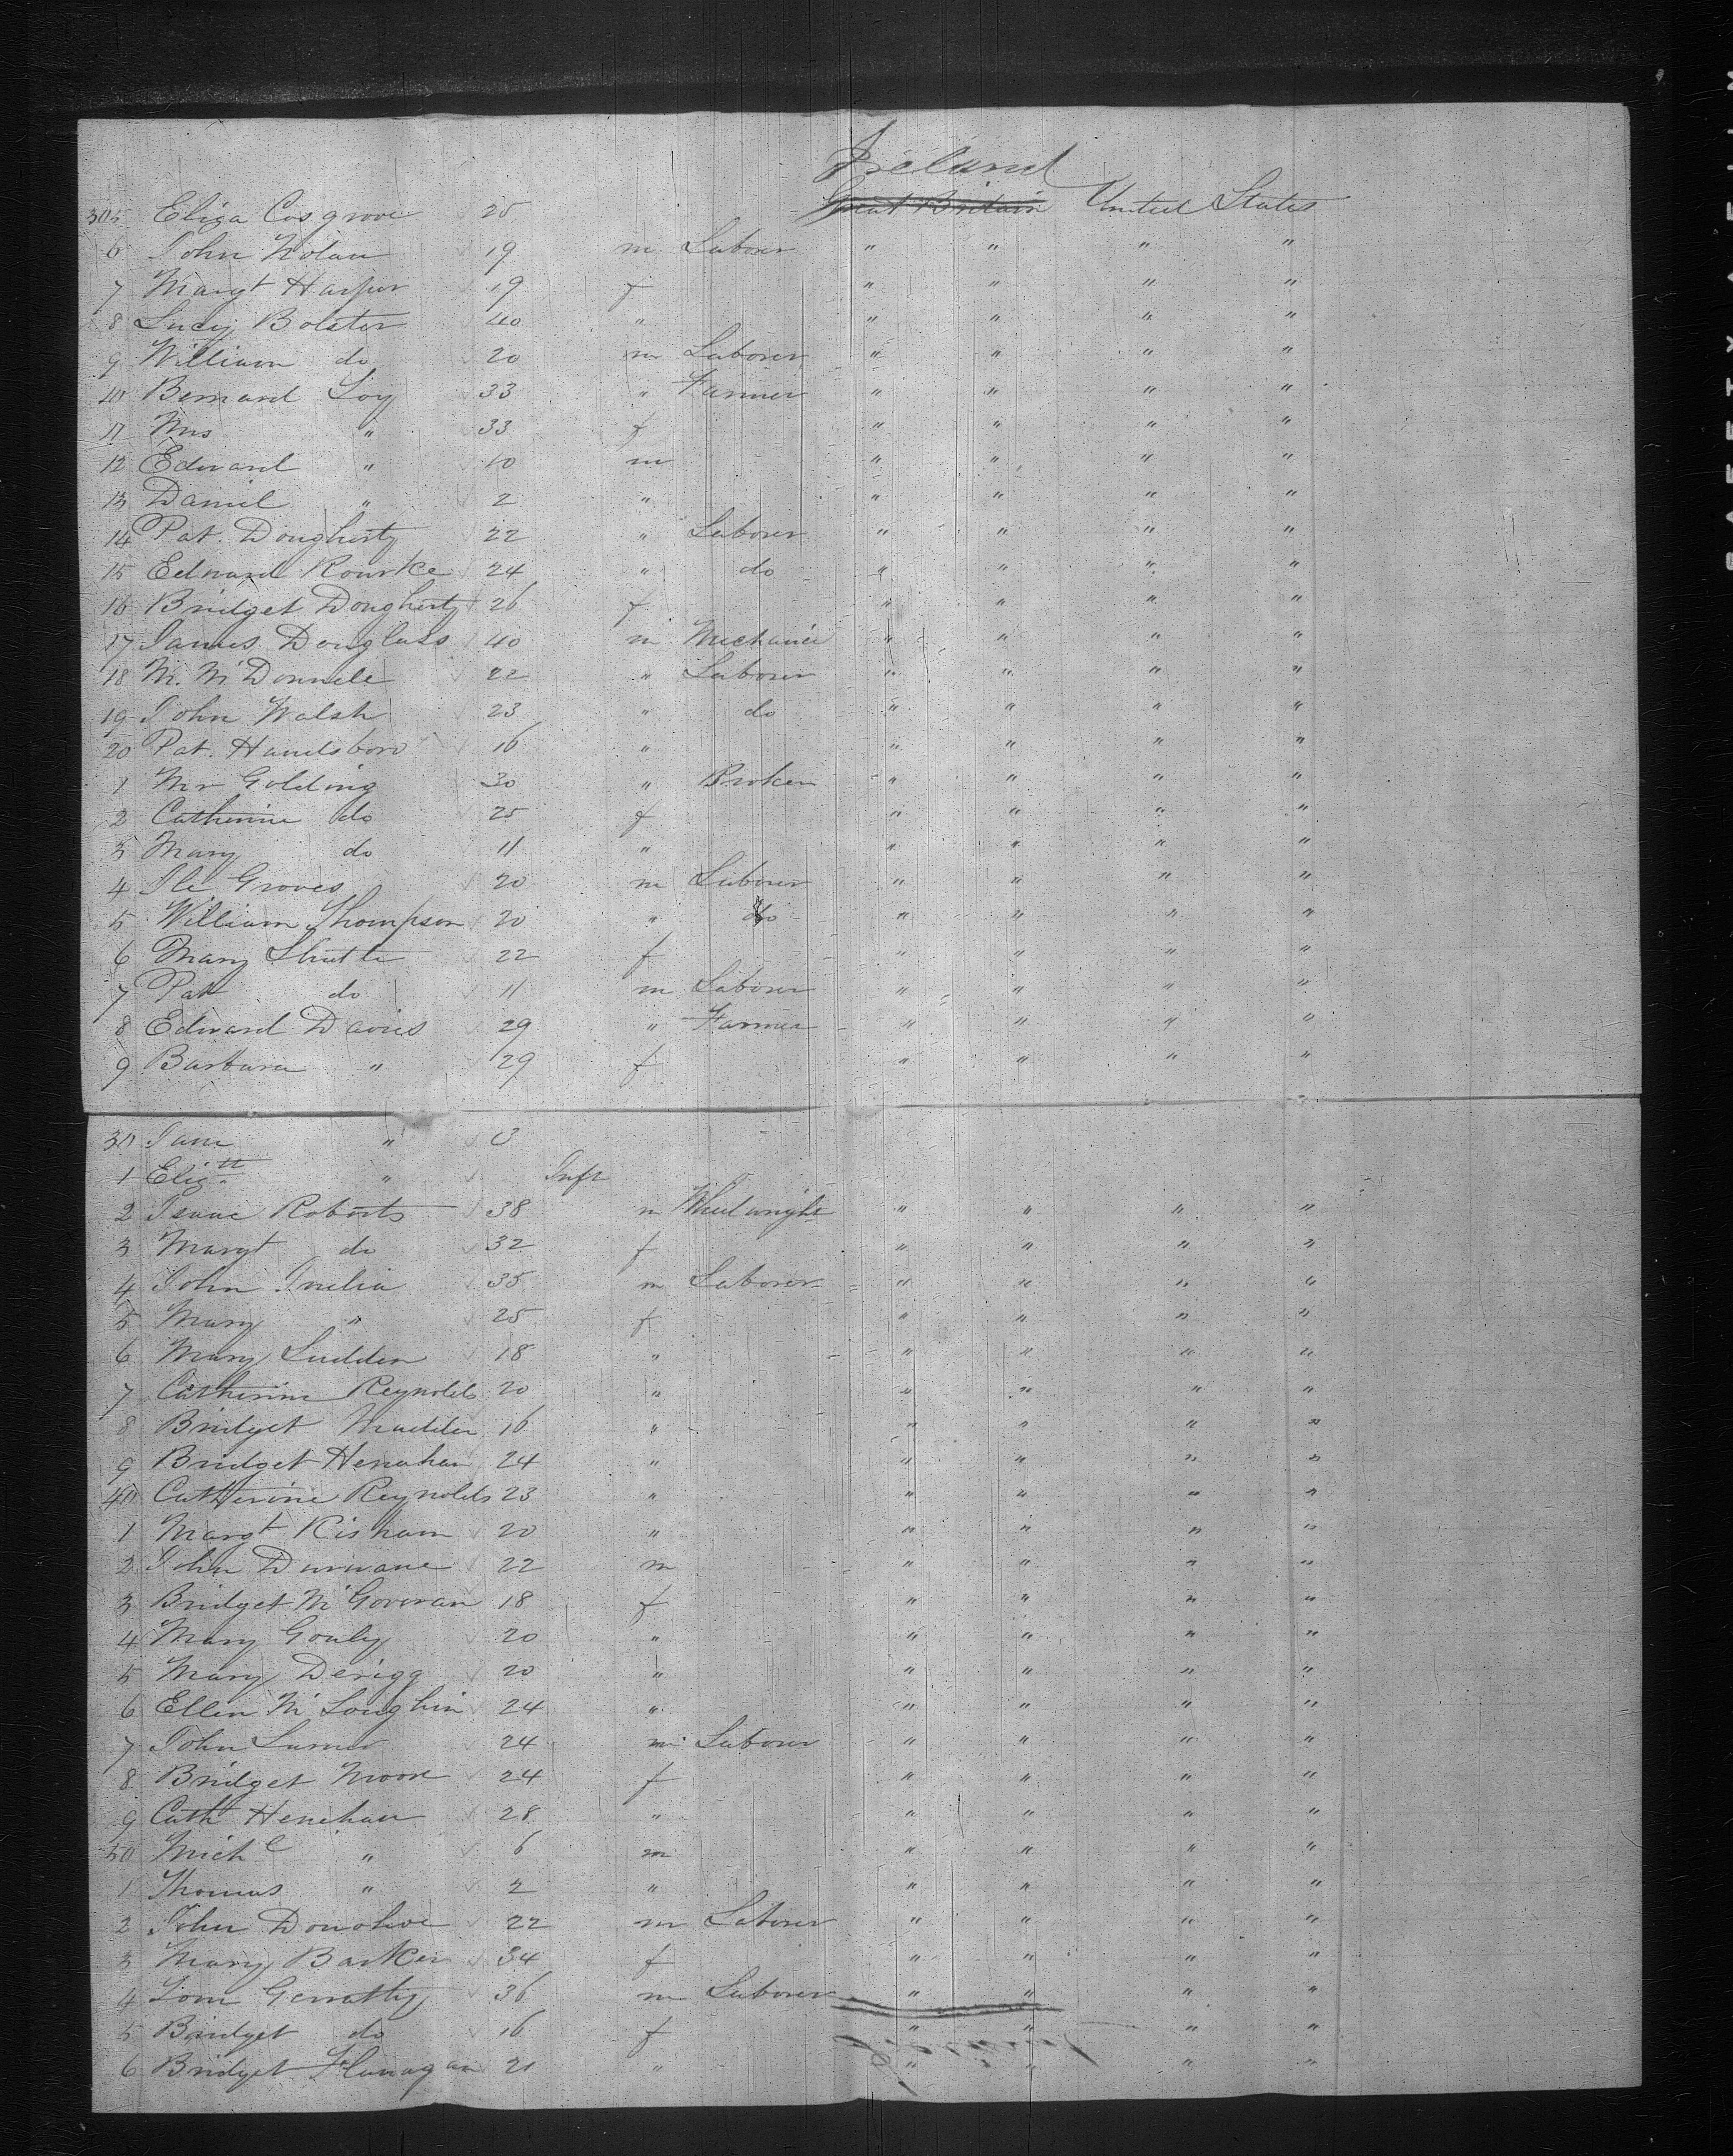 Ireland
305 Eliza Cosgrove 25 Great Britain United States
6 John Nolan 19 m Laborer " " " "
7 Margt Harper 19 f " " " "
8 Lucy Bolster 40 " " " " "
9 William do 20 m Laborer " " " "
10 Bernard Loy 33 " Farmer " " " "
11 Mrs " 33 f " " " "
12 Edward " 10 m " " " "
13 Daniel " 2 " " " " "
14 Pat. Dougherty 22 " Laborer " " " "
15 Edward Rourke 24 " do " " " "
16 Bridget Dougherty 26 f " " " "
17 James Douglass 40 m Mechanic " " " "
18 M. McDonnele 22 " Laborer " " " "
19 John Walsh 23 " do " " " "
20 Pat. Handsboro 16 " " " " "
1 Mr Golding 30 " Broker " " " "
2 Catherine do 25 f " " " "
3 Mary do 11 " " " " "
4 Groves 20 m Laborer " " " "
5 William Thompson 20 " do " " " "
6 Mary Shutte 22 f " " " "
7 Pat do 11 m Laborer " " " "
8 Edward Davies 29 " Farmer " " " "
9 Barbara " 29 f " " " "
30 Jane "
1 Eliz.th " Inft
2 Isaac Roberts 38 m Wheelwright " " " "
3 Margt do 32 f " " " "
4 John 35 m Laborer " " " "
5 Mary " 25 f " " " "
6 Mary Ludden 18 " " " " "
7 Catherine Reynolds 20 " " " " "
8 Bridget Madden 16 " " " " "
9 Bridget Henahan 24 " " " " "
40 Catherine Reynolds 23 " " " " "
1 Margt Kisham 20 " " " " "
2 John Durwane 22 m " " " "
3 Bridget McGovran 18 f " " " "
4 Mary Gouly 20 " " " " "
5 Mary Derigg 20 " " " " "
6 Ellen McLoughin 24 " " " " "
7 John 24 m Laborer " " " "
8 Bridget Moore 24 f " " " "
9 Cath Henehan 28 " " " " "
50 Michl " 6 m " " " "
1 Thomas " 2 " " " " "
2 John Donohoe 22 m Laborer " " " "
3 Mary Barker 34 f " " " "
4 Tom Gerratty 36 m Laborer " " " "
5 Bridget do 16 f " " " "
6 Bridget Flanagan 21 " " " " "